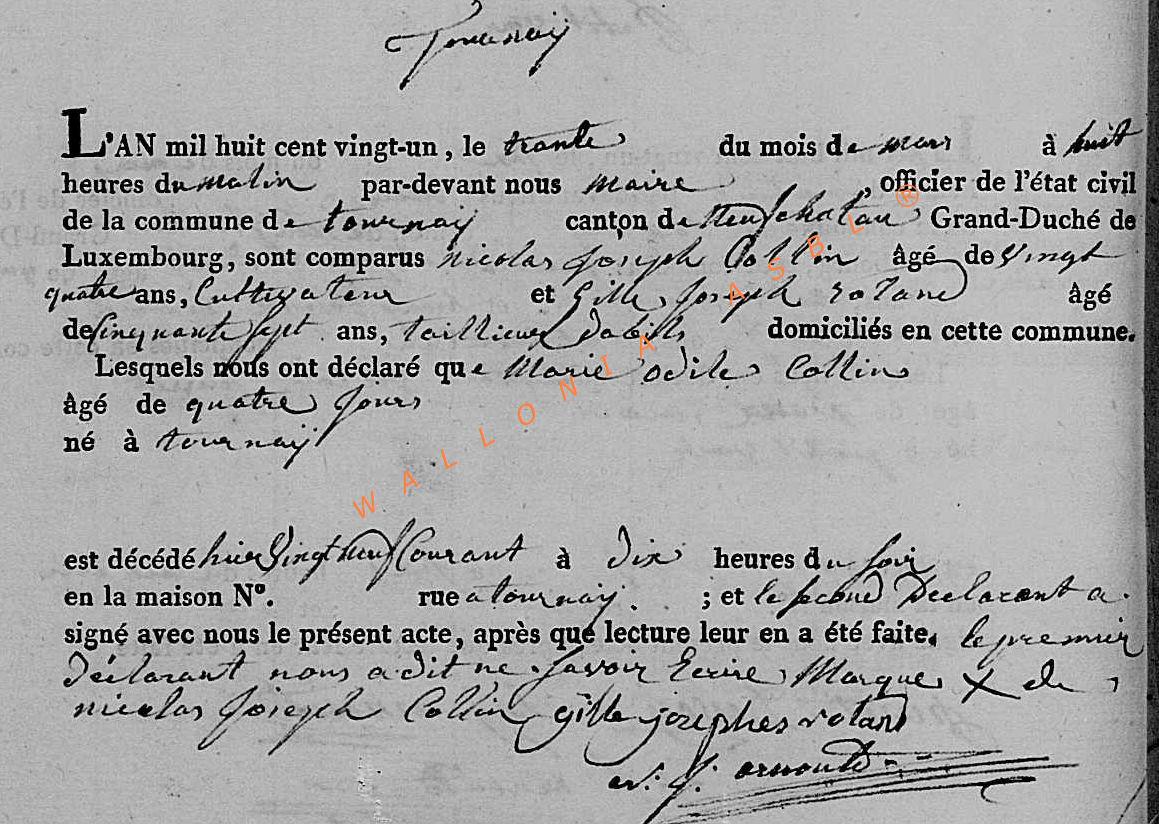 Tournay
L'AN mil huit cent vingt-un, le trante du mois de mars à huit
heures du matin par-devant nous maire, officier de l'état civil
de la commune de tournay canton de Neufchatau Grand-Duché de
Luxembourg, sont comparus nicolas Joseph Collin âgé de Vingt
quatre ans, Cultivateur et Gille Joseph rotand âgé
de Cinquante Sept ans, taillieur dabills domiciliés en cette commune.
Lesquels nous ont déclaré que Marie odile Collin
âgé de quatre Jours
né à tournay
est décédé hier Vingt neuf Courant à Dix heures du Soir
en la maison N°. rue a tournay. ; et le second Declarant a
signé avec nous le présent acte, après que lecture leur en a été faite. le premier
Déclarant nous a dit ne Savoir Ecrire Marque X de
nicolas Joseph Collin gille josephes rotand
J. arnould
WALLONIA ASBL ®